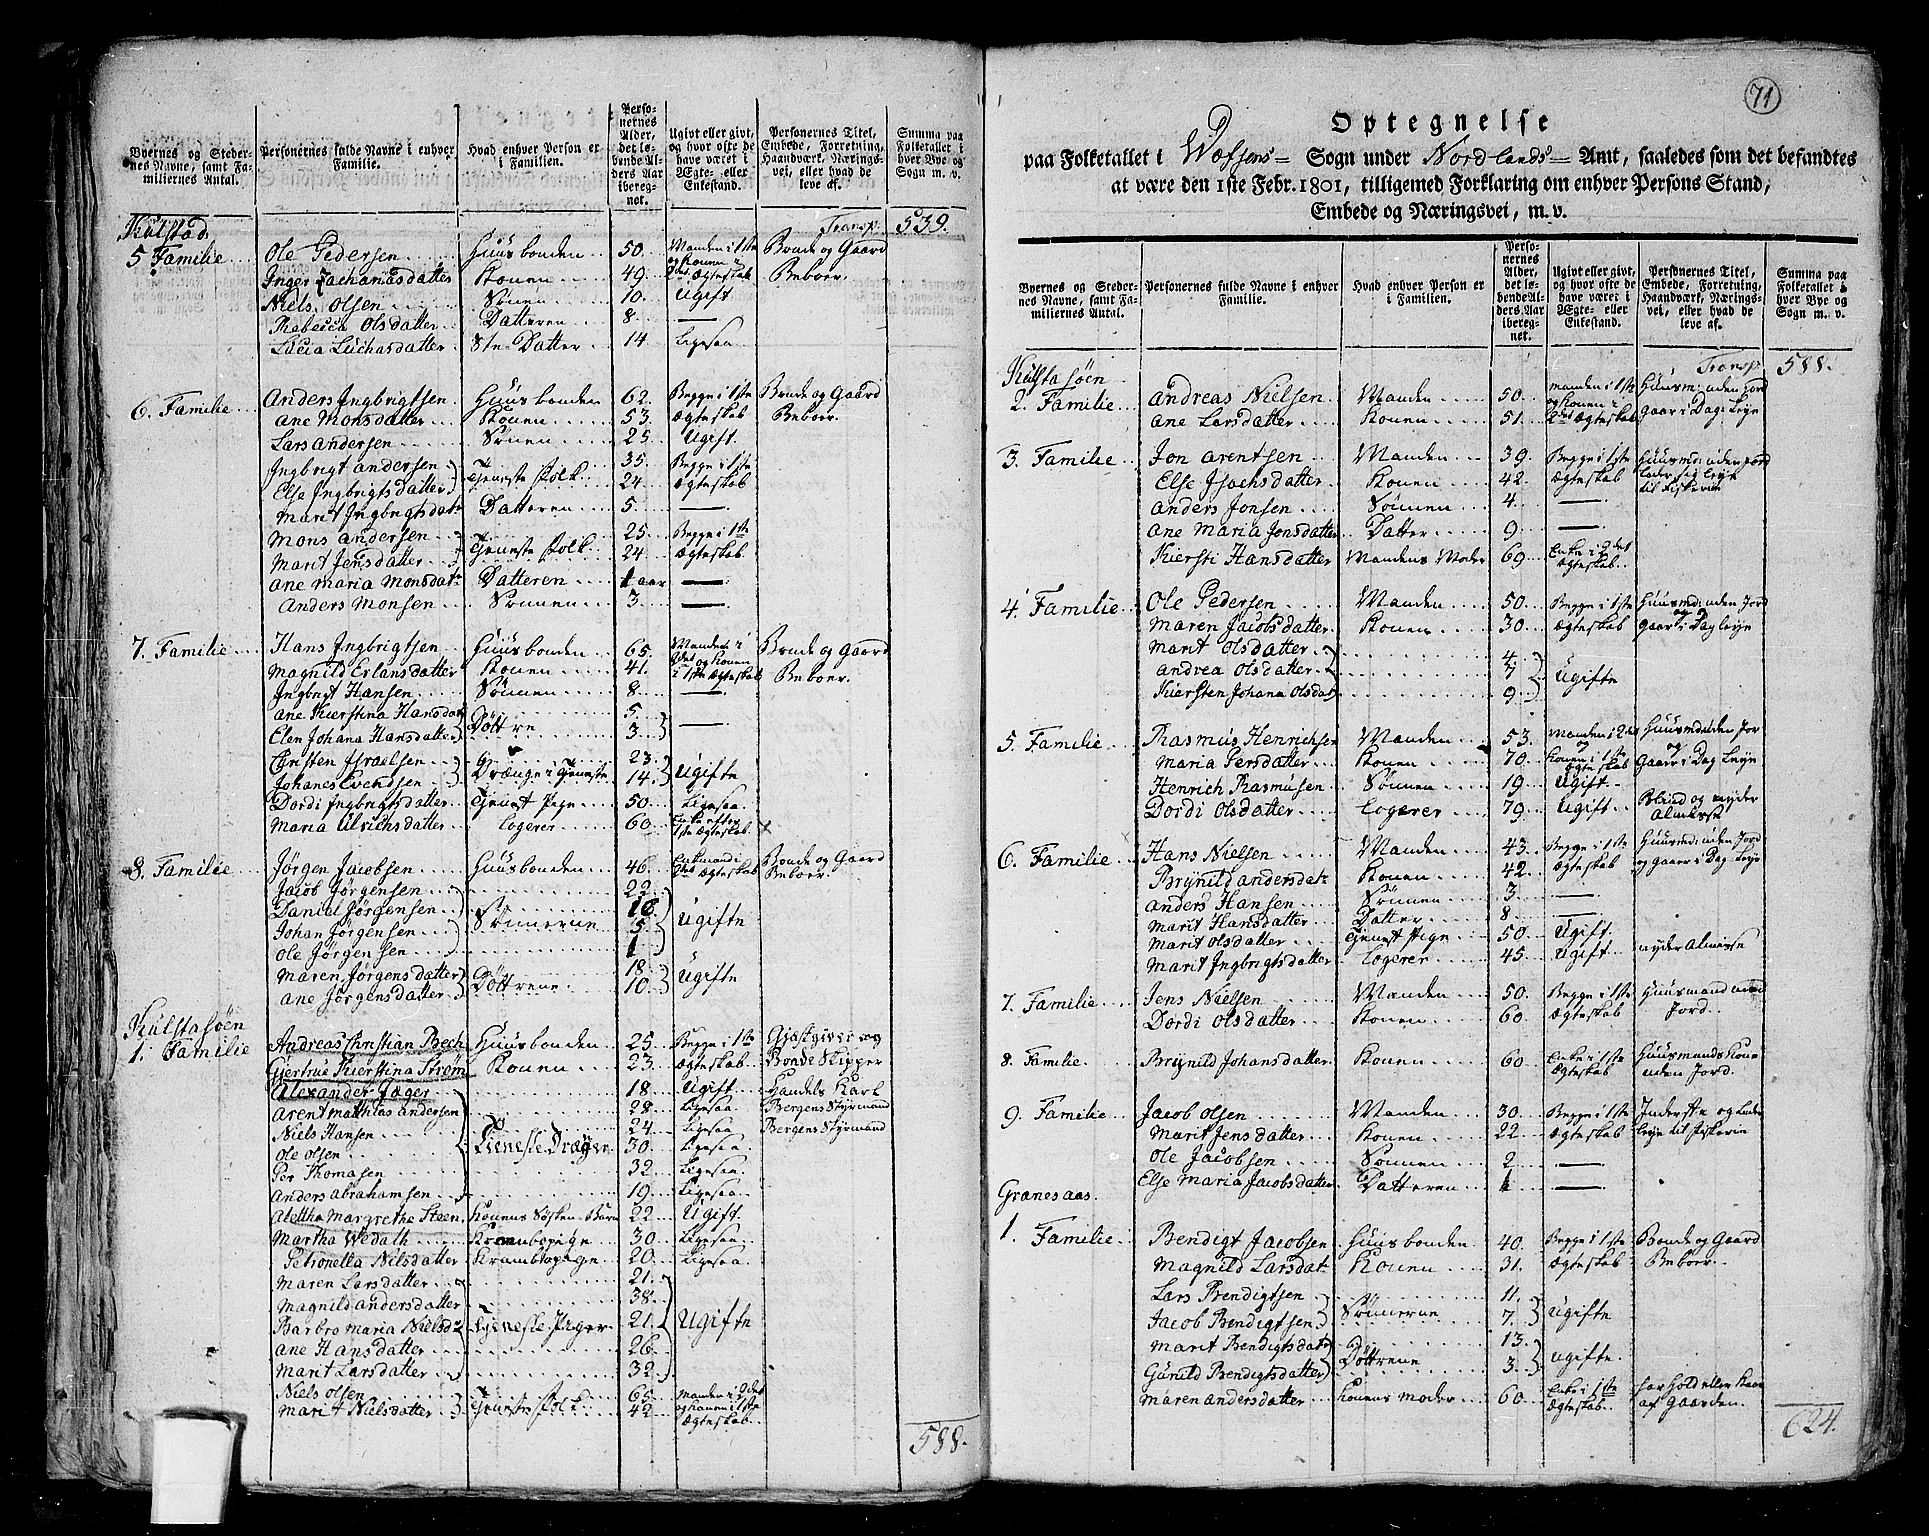 Byernes og Stedernes Navne, samt Familiernes Antal.
Personernes fulde Navne i enhver Familie.
Hvad enhver Person er i Familien.
Personernes Alder, det løbende Alders Aar iberegnet.
Ugivt eller givt, og hvor ofte de have været i Ægte- eller Enkestand.
Personernes Titel, Embede, Forretning, Haandværk, Næringsvei, eller hvad de leve af.
Summa paa Folketallet i hver Bye og Sogn m. v.
Kulstad Transp. 539.
5 Familie Ole Pedersen Huusbonden 50. Manden i 1ste Bonde og Gaard
Inger Zachariasdatter Konen 49 og Konen i 2det Ægteskab Beboer.
Niels Olsen Sönen 10. Ugift
Rebecca Olsdatter Datteren 8 —
Lucia Luchasdatter Ste-Datter 14 Ligesaa
6. Familie Anders Ingbrigtsen Huusbonden 62. Begge i 1ste Bonde og Gaard
Ane Monsdatter Konen 53. Ægteskab Beboer.
Lars Andersen Sönen 25 Ugift.
Ingbrigt Andersen 35. Begge i 1ste
Else Ingbrigtsdatter Tjeneste Folk 24 Ægteskab
Marit Ingbrigtsdatr Datteren 5 —
Mons Andersen 25 Begge i 1ste
Marit Jensdatter Tjeneste Folk 24 Ægteskab
Ane Maria Monsdatr Datteren 1 aar —
Anders Monsen Sönnen 3 —
7. Familie Hans Ingbrigtsen Huusbonden 65. Manden i Bonde og Gaard
Magnild Erlansdatter Konen 41. 2det og Konen i 1ste Ægteskab Beboer.
Ingbrigt Hansen Sönnen 8 —
Ane Kierstina Hansdat 5.
Elen Johana Hansdatter Döttre 3 —
Christen Israelsen 23
Johanes Evendsen Drænge i Tjeneste 14 Ugifte
Dordi Ingbrigtsdatter Tjenest Pige 50. Ligesaa
Maria Ulrichsdatter Logerer 60 Enke efter 1ste Ægteskab
8. Familie Jörgen Jacobsen Huusbonden 46. Enkemand i Bonde og Gaard
Jacob Jörgensen 22 2det Ægteskab Beboer.
Daniel Jörgensen 16
Johan Jörgensen Sönnerne 5 Ugifte
Ole Jörgensen 1
Maren Jörgensdatter 18
Ane Jörgensdatter Döttrene 10 Ugifte
Kulstasöen
1. Familie Andreas Christian Bech Huusbonden 25 Begge i 1ste Giæstgiver og
Giertrue Kierstina Ström Konen 23 Ægteskab Skipper
Alexander Jæger 18 Ugift Handels Karl
Arent Matthias Andersen 28 Ligesaa Bergens Styrmand
Niels Hansen 24 Ligesaa Bergens Styrmand
Ole Olsen Tieneste Dræger 30 Ligesaa
Per Thomasen 32 Ligesaa
Anders Abrahamsen 19 Ligesaa
Alettha Margrethe Steen Konens Søsken-Barn 22 Ugift
Martha Wedath Krambopige 30 Ligesaa
Petronella Nilsdatter Krambopige 20 Ligesaa
Maren Larsdatter 21.
Magnild Andersdatter 38.
Barbro Maria Nielsd Tjeneste Piger 21. Ugifte
Ane Hansdatter 26
Marit Larsdatter 32
Niels Olsen 65 Manden i 2det
Marit Nielsdatter Tjeneste Folk 42 og Konen i 1ste Ægteskab
588.
71
Optegnelse
paa Folketallet i Wefsens Sogn under Nordlands Amt, saaledes som det befandtes
at være den 1ste Febr. 1801, tilligemed Forklaring om enhver Persons Stand,
Embede og Næringsvei, m. v.
Byernes og Stedernes Navne, samt Familiernes Antal.
Personernes fulde Navne i enhver Familie.
Hvad enhver Person er i Familien.
Personernes Alder, det løbende Alders Aar iberegnet.
Ugivt eller givt, og hvor ofte de have været i Ægte- eller Enkestand.
Personernes Titel, Embede, Forretning, Haandværk, Næringsvei, eller hvad de leve af.
Summa paa Folketallet i hver Bye og Sogn m. v.
Kulstasöen Transp 588.
2. Familie Andreas Nielsen Manden 50. Manden i 1ste Huusmd: uden Jord
Ane Larsdatter Konen 51. og Konen i 2det Ægteskab gaar i Dag Leje
3. Familie Jon Arentsen Manden 39. Begge i 1ste Huusmd: uden Jord
Else Isachsdatter Konen 42. Ægteskab til Fiskerie
Anders Jonsen Sönnen 4 —
Ane Maria Jonsdatter Datter 9 —
Kiersti Hansdatter Mandens Moder 69 Enke i 2det Ægteskab
4. Familie Ole Pedersen Manden 50 Begge i 1ste Huusmd: uden Jord
Maren Jacobsdatter Konen 30 Ægteskab og gaar i Dagleje
Marit Olsdatter 4
Andrea Olsdatter 7 Ugifte
Kiersten Johana Olsdat 9
5. Familie Rasmus Henrichsen Manden 53. Manden i 2det Huusmd uden Jor
Maria Persdatter Konen 70 og Konen i 1ste Ægteskab og Gaar i Dag Leje
Henrich Rasmusen Sönnen 19 Ugift
Dordi Olsdatter Logerer 79 Ugift Blind og nyder Almisse
6. Familie Hans Nielsen Manden 43. Begge i 1ste Huusmd: uden Jord
Brynild Andersdatr Konen 42. Ægteskab og gaar i Dag Leje
Anders Hansen Sönnen 3 —
Marit Hansdatter Datter 8 —
Marit Olsdatter Tjenest Pige 50. Ugift
Marit Ingbrigtsdatter Logerer 45 Ugift nyder Almisse
7. Familie Jens Nielsen Manden 50. Begge i 1ste Huusmand uden
Dordi Olsdatter Konen 60 Ægteskab Jord.
8. Familie Brynild Johansdatter Konen 60 Enke i 1ste Ægteskab Huusmands Kone uden Jord.
9. Familie Jacob Olsen Manden 30. Begge i 1ste Inderste og
Marit Jensdatter Konen 22 Ægteskab til Fiskerie
Ole Jacobsen Sönnen 2 —
Else Maria Jacobsdatter Datteren 1 —
Granesaas.
1. Familie Bendigt Jacobsen Huusbonden 40. Begge i 1ste Bonde og Gaard
Magnild Larsdatr Konen 31. Ægteskab Beboer.
Lars Bendigtsen 11.
Jacob Bendigtsen Sönnerne 7. Ugifte
Marit Bendigtsdatr 13.
Gunild Bendigtsdatter Döttrene 3. Ugifte
Maren Andersdatter Konens Moder 60 Enke i 1ste Ægteskab. har hold af Gaarden.
624.